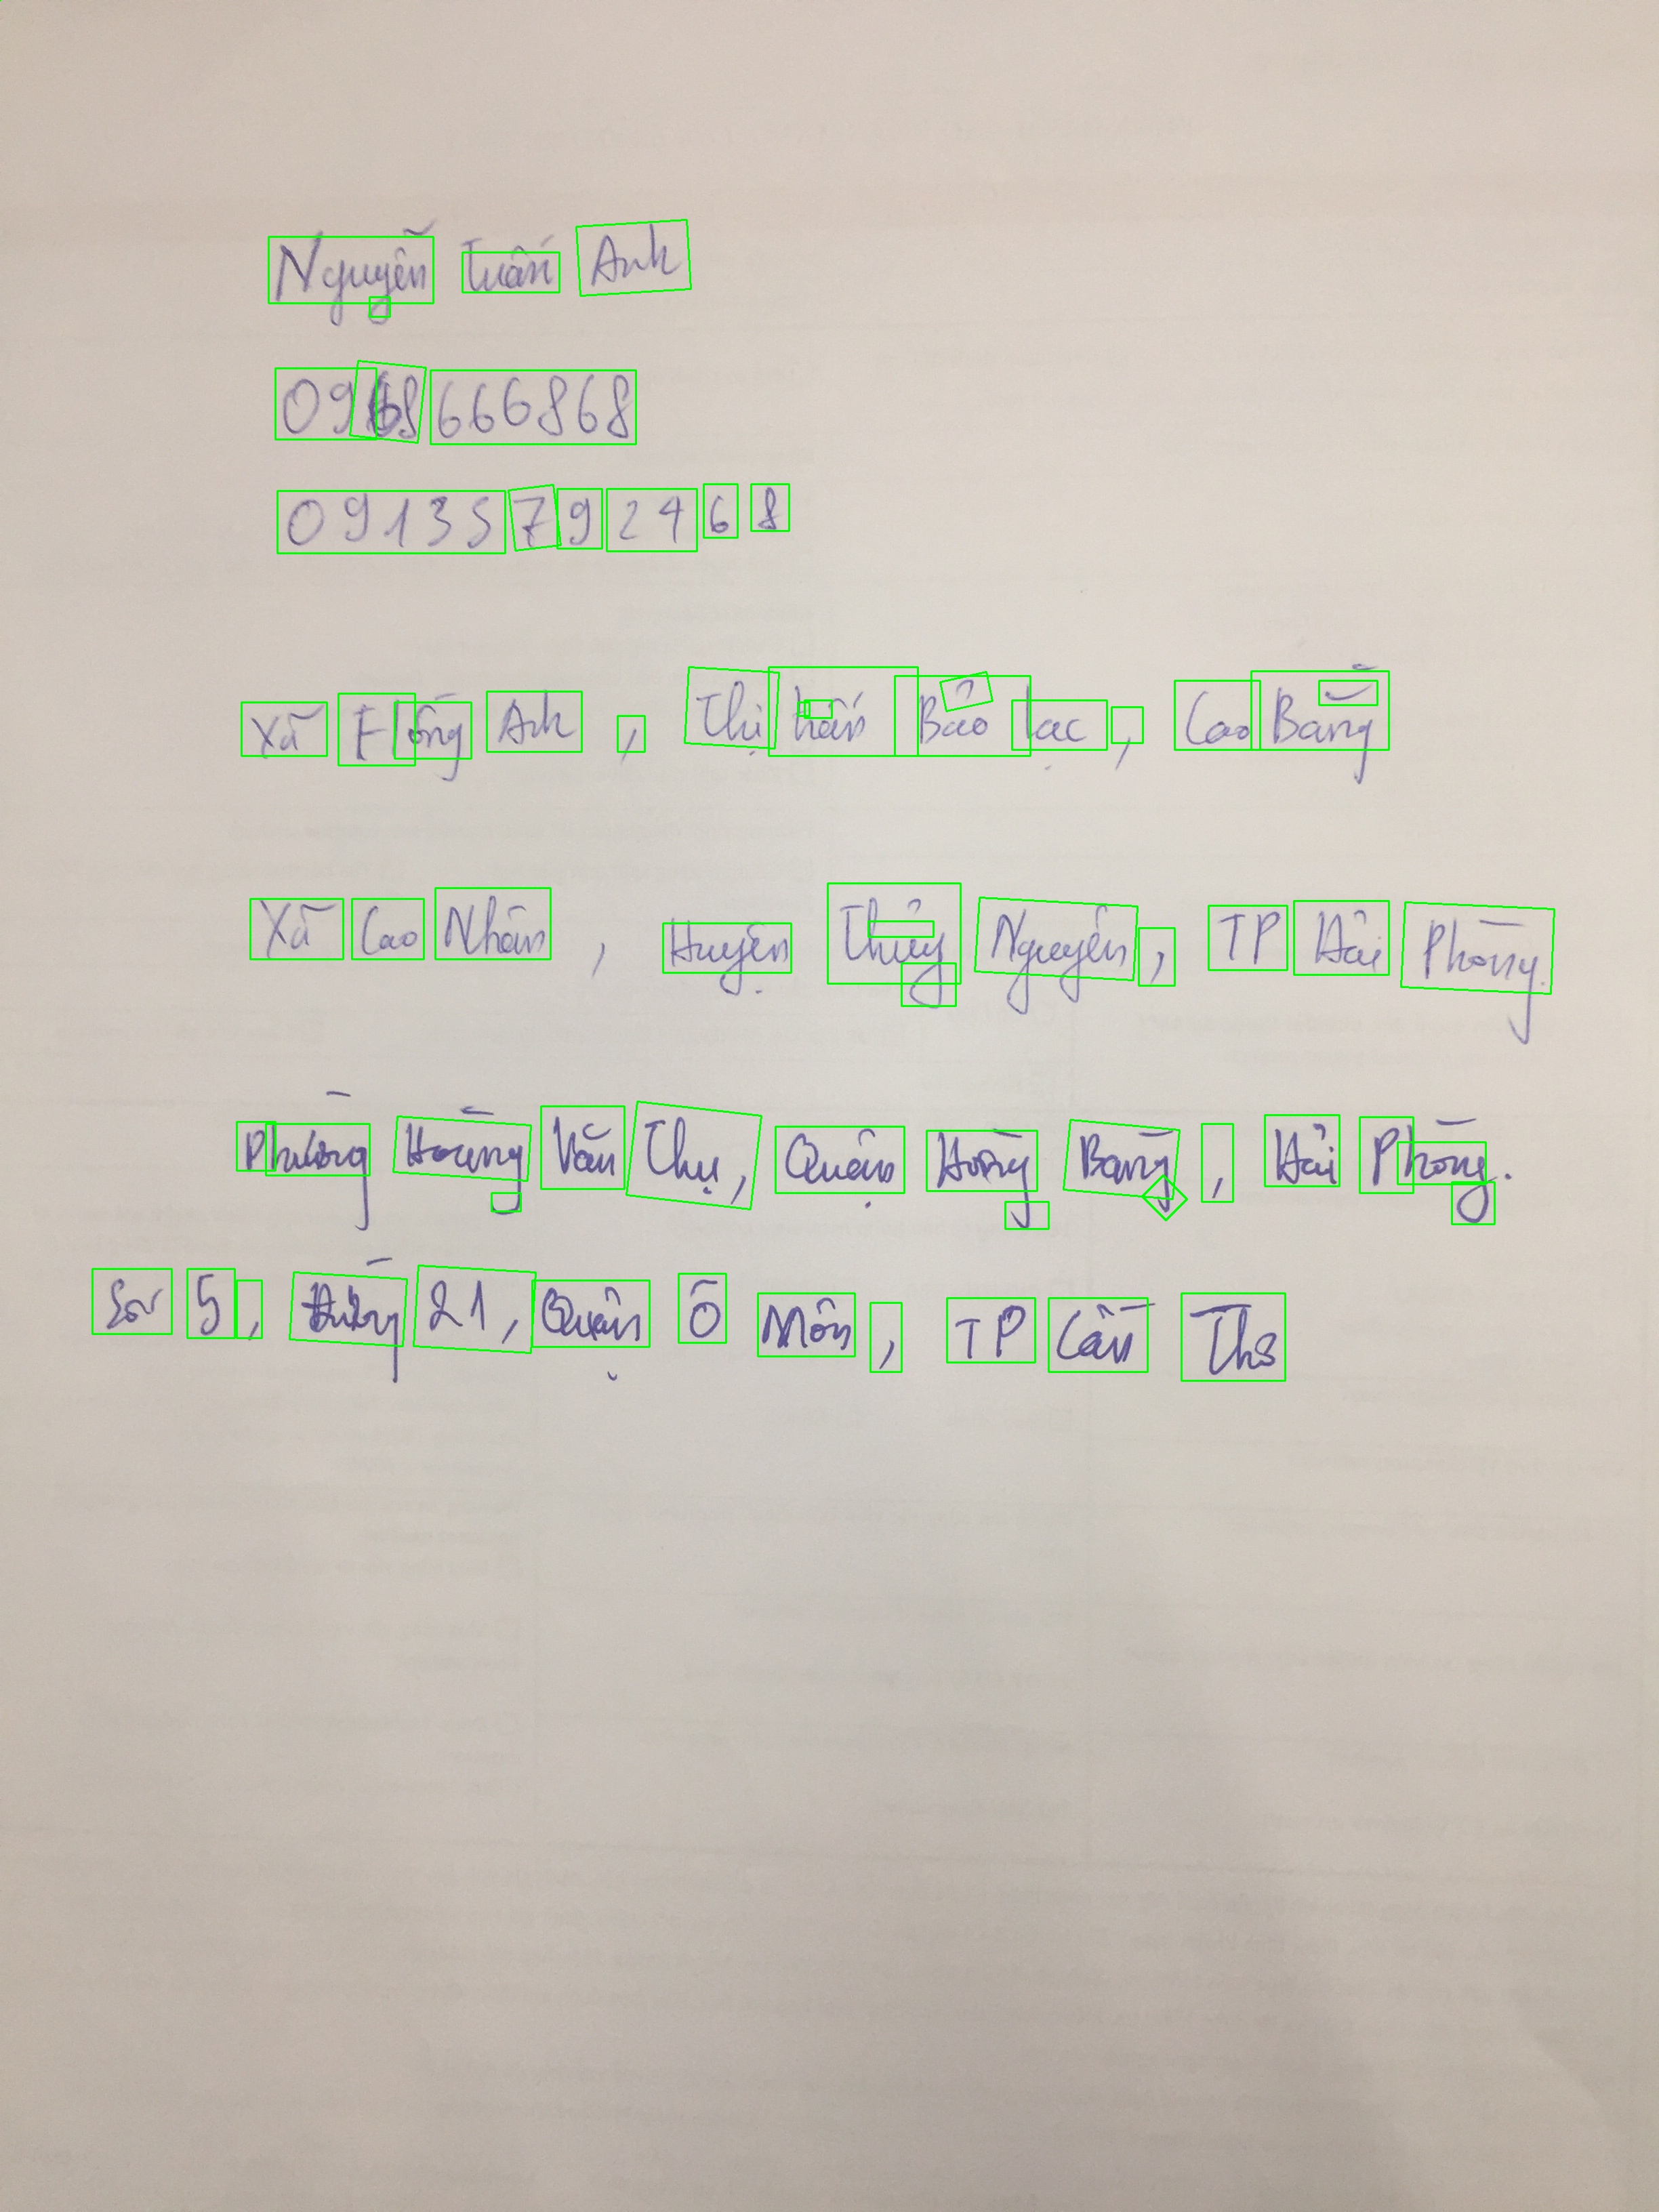 Nguyễn Tuấn Anh
0968666868
09135792468
Xã Hồng Anh, Thị trấn Bảo Lạc, Cao Bằng
Xã Cao Nhân, Huyện Thủy Nguyên, TP Hải Phòng.
Phường Hoàng Văn Thụ, Quận Hồng Bàng, Hải Phòng.
5, Đường 21, Quận Ô Môn, TP Cần Thơ